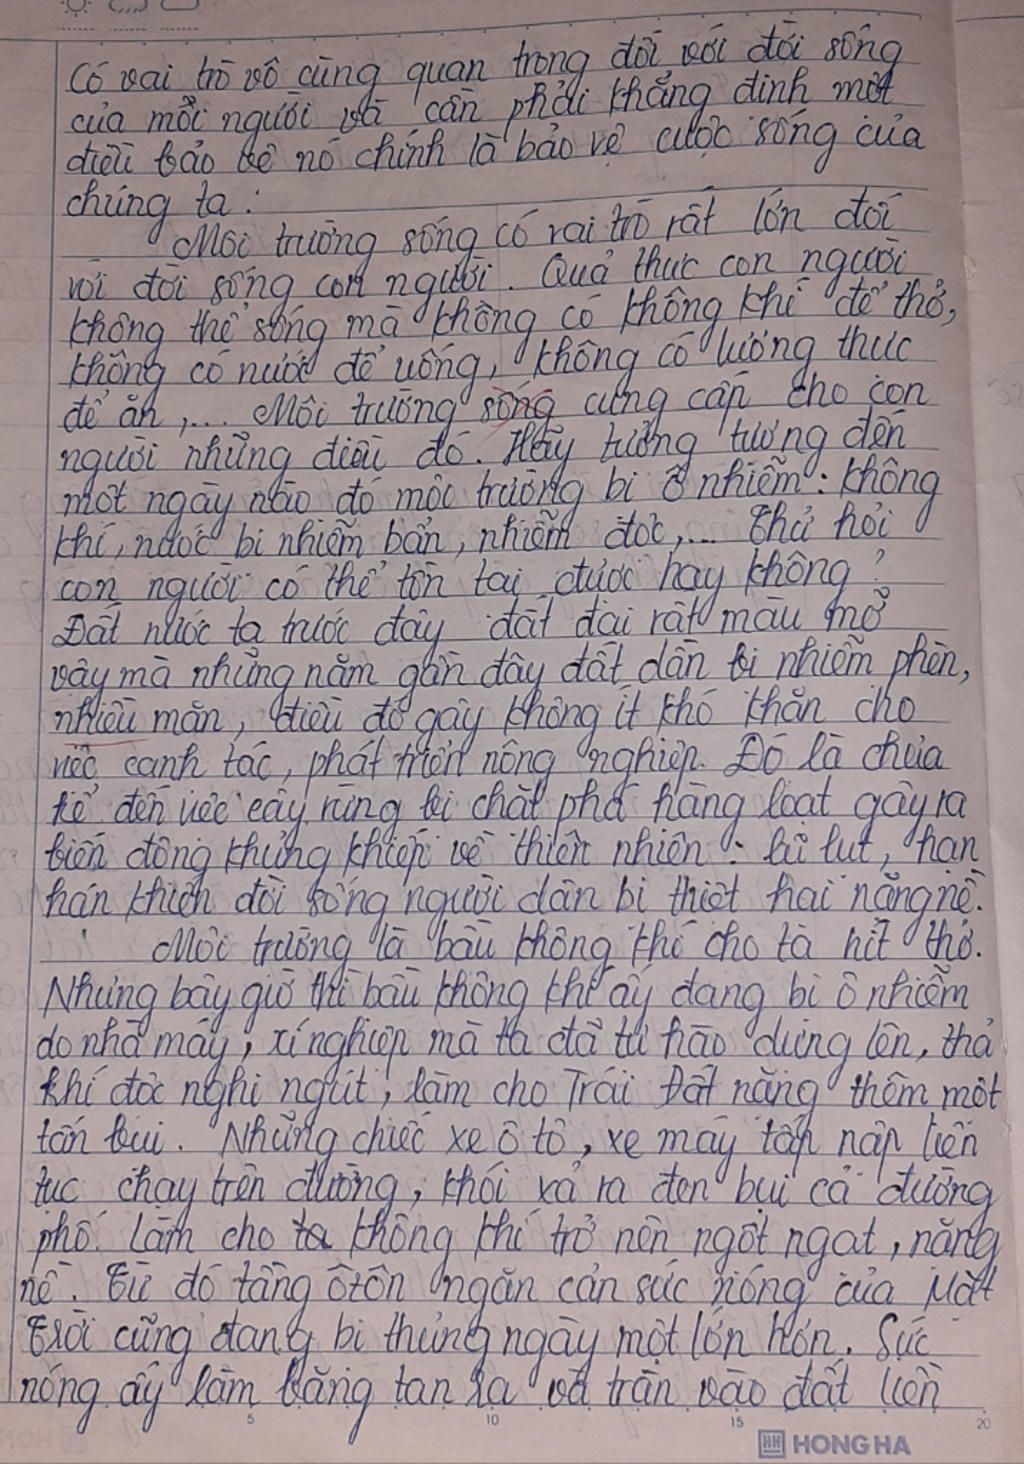 Có vai trò vô cùng quan trọng đối với đời sống
của mỗi người và cần phải khẳng định một
điều bảo vệ nó chính là bảo vệ cuộc sống của
chúng ta.
Môi trường sống có vai trò rất lớn đối
với đời sống con người. Quả thực con người
không thể sống mà không có không khí để thở,
không có nước để uống, không có lương thực
để ăn,... Môi trường sống cung cấp cho con
người những điều đó. Hãy tưởng tượng đến
một ngày nào đó môi trường bị ô nhiễm: không
khí, nước bị nhiễm bẩn, nhiễm độc,... Thử hỏi
con người có thể tồn tại được hay không?
Đất nước ta trước đây đất đai rất màu mỡ
vậy mà những năm gần đây đất dần bị nhiễm phèn,
nhiều mặn, điều đó gây không ít khó khăn cho
việc canh tác, phát triển nông nghiệp. Đó là chưa
kể đến việc cây rừng bị chặt phá hàng loạt gây ra
biến động khủng khiếp về thiên nhiên: lũ lụt, hạn
hán khiến đời sống người dân bị thiệt hại nặng nề.
Môi trường là bầu không khí cho ta hít thở.
Nhưng bây giờ thì bầu không khí ấy đang bị ô nhiễm
do nhà máy, xí nghiệp mà ta đã tự hào dựng lên, thả
khí độc nghi ngút, làm cho Trái Đất nặng thêm một
tấn bụi. Những chiếc xe ô tô, xe máy tấp nập liên
tục chạy trên đường, khói xả ra đen bụi cả đường
phố. Làm cho ta không khí trở nên ngột ngạt, nặng
nề. Từ đó tầng ôtôn ngăn cản sức nóng của Mặt
Trời cũng đang bị thủng ngày một lớn hơn. Sức
nóng ấy làm băng tan ra và tràn vào đất liền
5 10 15 20
HH HONG HA